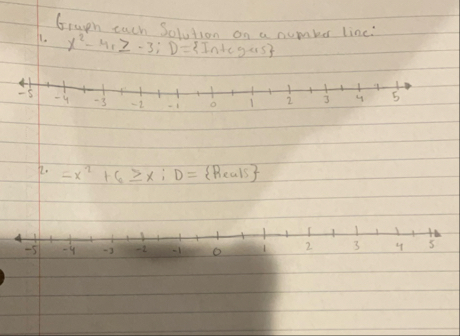 Graph each Solution on a number line:
1. x² - 4 ≥ -3; D = {Integers}
-5 -4 -3 -2 -1 0 1 2 3 4 5
2. -x² + 6 ≥ x; D = {Reals}
-5 -4 -3 -2 -1 0 1 2 3 4 5